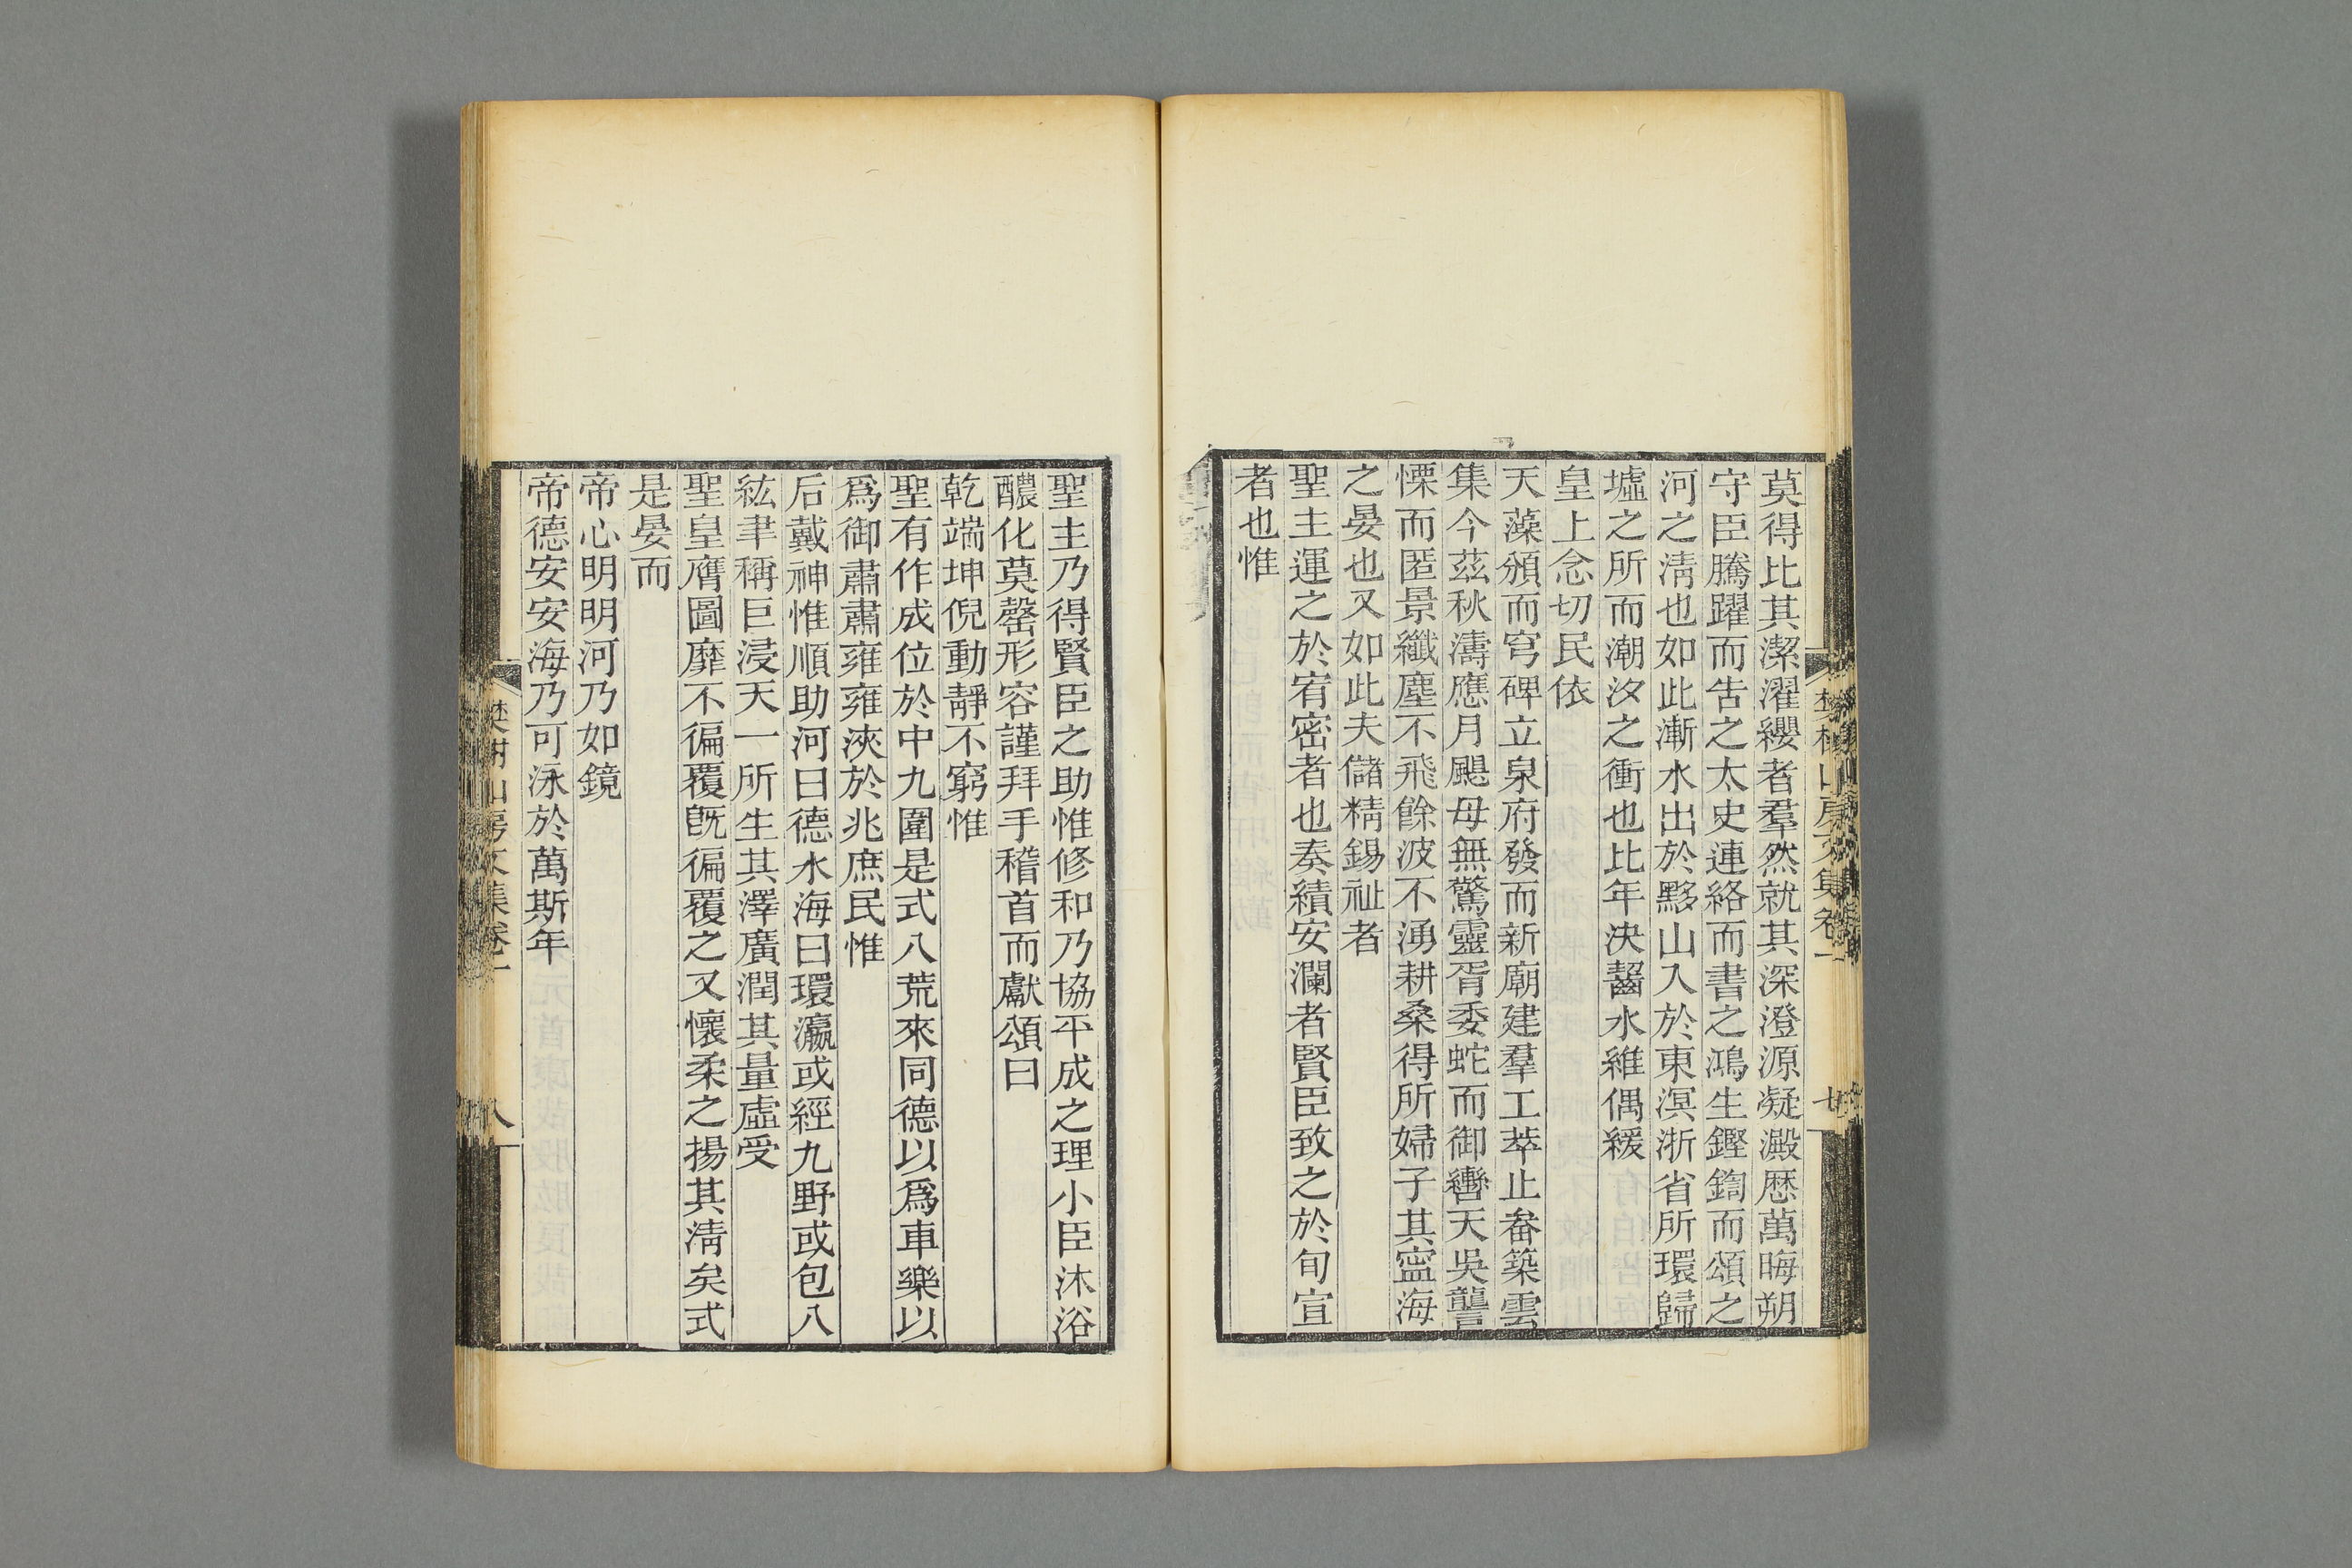 莫得比其潔濯纓者羣然就其深澄源凝澱歷萬晦朔
守臣騰躍而告之太史連絡而書之鴻生鏗鍧而頌之
河之淸也如此漸水出於黟山入於東溟浙省所環歸
墟之所而潮汐之衝也比年決齧水維偶緩
皇上念切民依
天藻頒而穹碑立泉府發而新廟建羣工萃止畚築雲
集今茲秋濤應月颶母無驚靈胥委蛇而御轡天吳讋
慄而匿景纖塵不飛餘波不湧耕桑得所婦子其寍海
之晏也又如此夫儲精錫祉者
聖主運之於宥密者也奏績安瀾者賢臣致之於旬宣
者也惟
聖主乃得賢臣之助惟修和乃協平成之理小臣沐浴
醲化莫罄形容謹拜手稽首而獻頌曰
乾端坤倪動靜不窮惟
聖有作成位於中九圍是式八荒來同德以爲車樂以
爲御肅肅雍雍浹於兆庶民惟
后戴神惟順助河曰德水海曰環瀛或經九野或包八
紘聿稱巨浸天一所生其澤廣潤其量虛受
聖皇膺圖靡不徧覆旣徧覆之又懷柔之揚其淸矣式
是晏而
帝心明明河乃如鏡
帝德安安海乃可泳於萬斯年
樊榭山房文集卷一
八